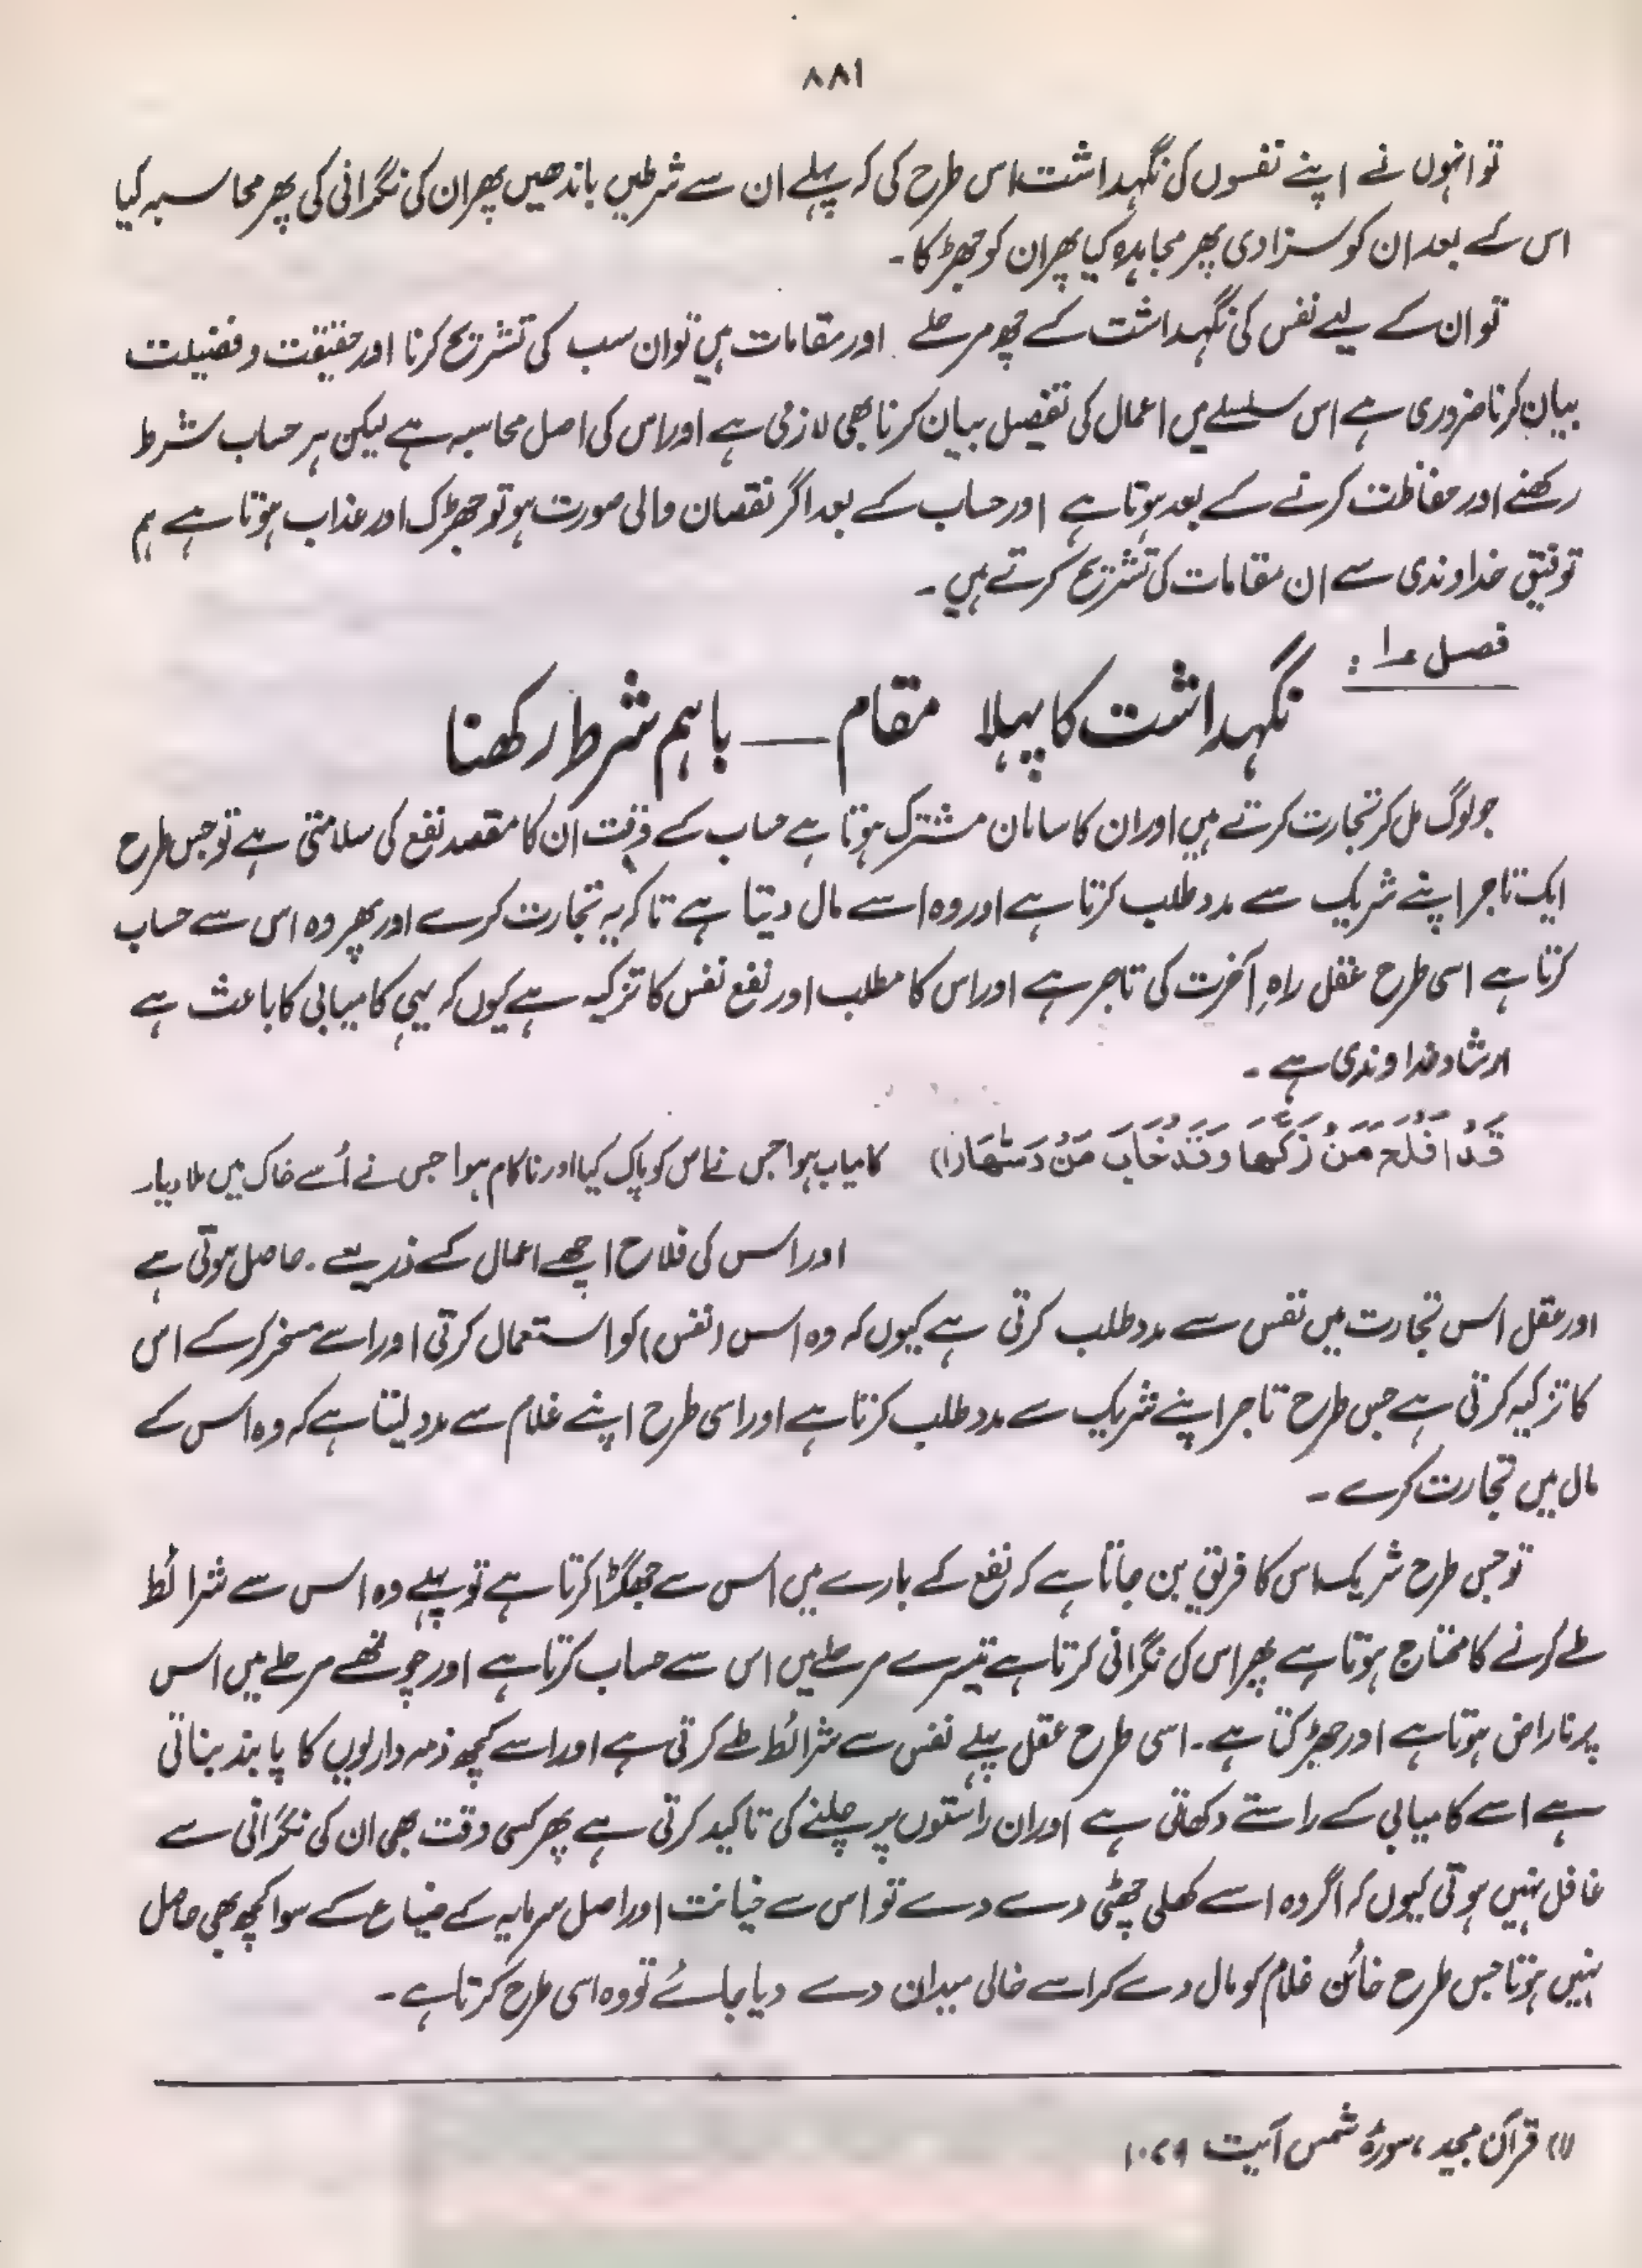 ۸۸۱
تو انہوں نے اپنے نفسوں کی نگہداشت اس طرح کی کہ پہلے ان سے شرطیں باندھیں پھر ان کی نگرانی کی پھر محاسبہ کیا
اس کے بعد ان کو سزا دی پھر مجاہدہ کیا پھر ان کو جھڑکا۔
تو ان کے لیے نفس کی نگہداشت کے چھ مرحلے اور مقامات ہیں تو ان سب کی تشریح کرنا اور حقیقت و فضیلت
بیان کرنا ضروری ہے اس سلسلے میں اعمال کی تفصیل بیان کرنا بھی لازمی ہے اور اس کی اصل محاسبہ ہے لیکن ہر حساب شرط
رکھنے اور حفاظت کرنے کے بعد ہوتا ہے اور حساب کے بعد اگر نقصان والی صورت ہو تو جھڑک اور عذاب ہوتا ہے ہم
توفیق خداوندی سے ان مقامات کی تشریح کرتے ہیں۔
فصل ۱:
نگہداشت کا پہلا مقام — باہم شرط رکھنا
جو لوگ مل کر تجارت کرتے ہیں اور ان کا سامان مشترک ہوتا ہے حساب کے وقت ان کا مقصد نفع کی سلامتی ہے تو جس طرح
ایک تاجر اپنے شریک سے مدد طلب کرتا ہے اور وہ اسے مال دیتا ہے تاکہ یہ تجارت کرے اور پھر وہ اس سے حساب
کرتا ہے اسی طرح عقل راہِ آخرت کی تاجر ہے اور اس کا مطلب اور نفع نفس کا تزکیہ ہے کیوں کہ یہی کامیابی کا باعث ہے
ارشاد خداوندی ہے۔
قَدْ اَفْلَحَ مَنْ زَكّٰهَا وَقَدْ خَابَ مَنْ دَسّٰهَا (۱) کامیاب ہوا جس نے اس کو پاک کیا اور ناکام ہوا جس نے اُسے خاک میں ملا دیا۔
اور اس کی فلاح اچھے اعمال کے ذریعے۔ حاصل ہوتی ہے
اور عقل اس تجارت میں نفس سے مدد طلب کرتی ہے کیوں کہ وہ اس (نفس) کو استعمال کرتی اور اسے مسخر کرکے اس
کا تزکیہ کرتی ہے جس طرح تاجر اپنے شریک سے مدد طلب کرتا ہے اور اسی طرح اپنے غلام سے مدد لیتا ہے کہ وہ اس کے
مال میں تجارت کرے۔
تو جس طرح شریک اس کا فریق بن جاتا ہے کہ نفع کے بارے میں اس سے جھگڑا کرتا ہے تو پہلے وہ اس سے شرائط
طے کرنے کا محتاج ہوتا ہے پھر اس کی نگرانی کرتا ہے تیسرے مرحلے میں اس سے حساب کرتا ہے اور چوتھے مرحلے میں اس
پر ناراض ہوتا ہے اور جھڑکتا ہے۔ اسی طرح عقل پہلے نفس سے شرائط طے کرتی ہے اور اسے کچھ ذمہ داریوں کا پابند بناتی
ہے اسے کامیابی کے راستے دکھاتی ہے اور ان راستوں پر چلنے کی تاکید کرتی ہے پھر کسی وقت بھی ان کی نگرانی سے
غافل نہیں ہوتی کیوں کہ اگر وہ اسے کھلی چھٹی دے دے تو اس سے خیانت اور اصل سرمایہ کے ضیاع کے سوا کچھ بھی حاصل
نہیں ہوتا جس طرح خائن غلام کو مال دے کر اسے خالی میدان دے دیا جائے تو وہ اسی طرح کرتا ہے۔
(۱) قرآن مجید، سورۂ شمس آیت ۹، ۱۰